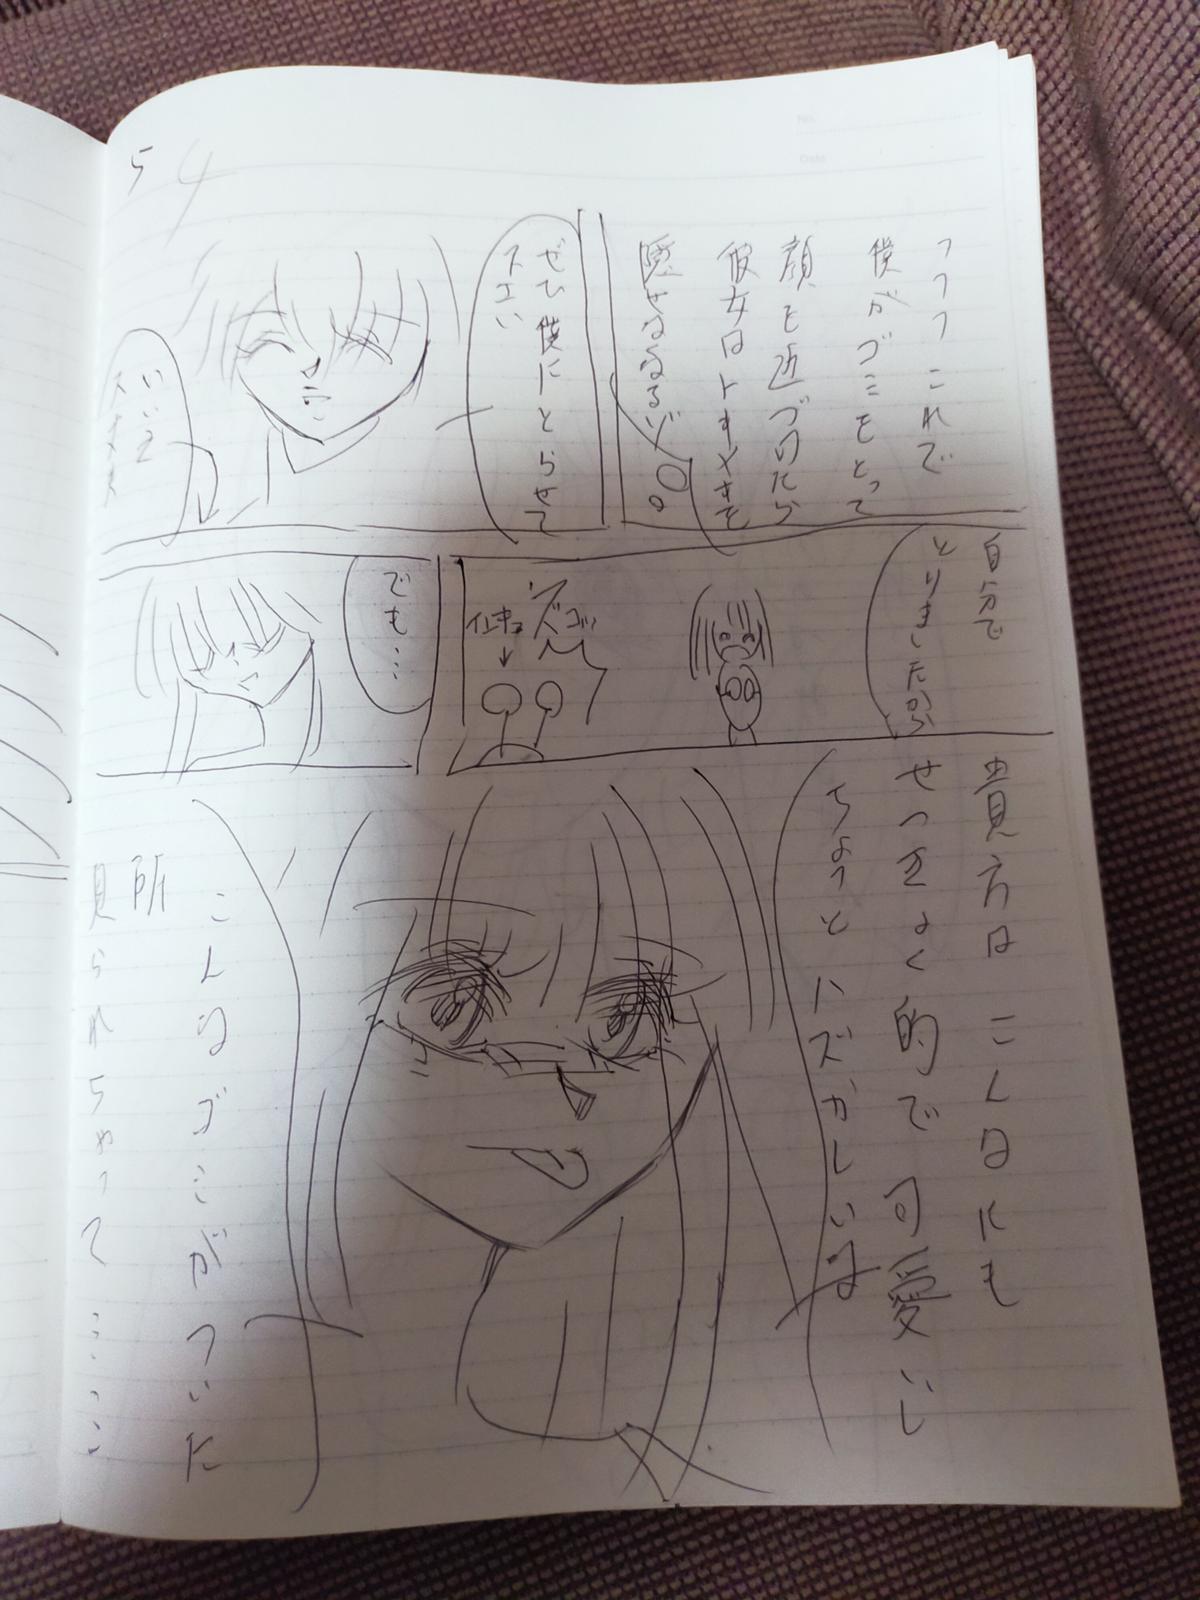 54
フフフこれで
僕がゴミをとって
顔を近づけたら
彼女はトキメキを
隠せなくなるゾ。
ぜひ僕にとらせて
下さい
いいえ
自分で
とりましたから
ズコッ
でも…
貴方はこんなにも
せっきょく的で可愛いし
ちょっとハズかしいな
こんなゴミがついた
所
見られちゃって……